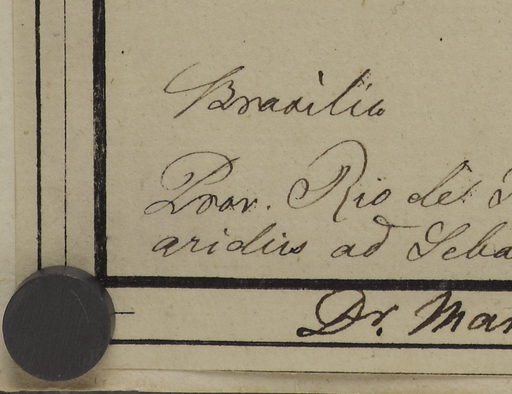 Brasilia
Prov. Rio de
aridis ad Seba
Dr. Mar